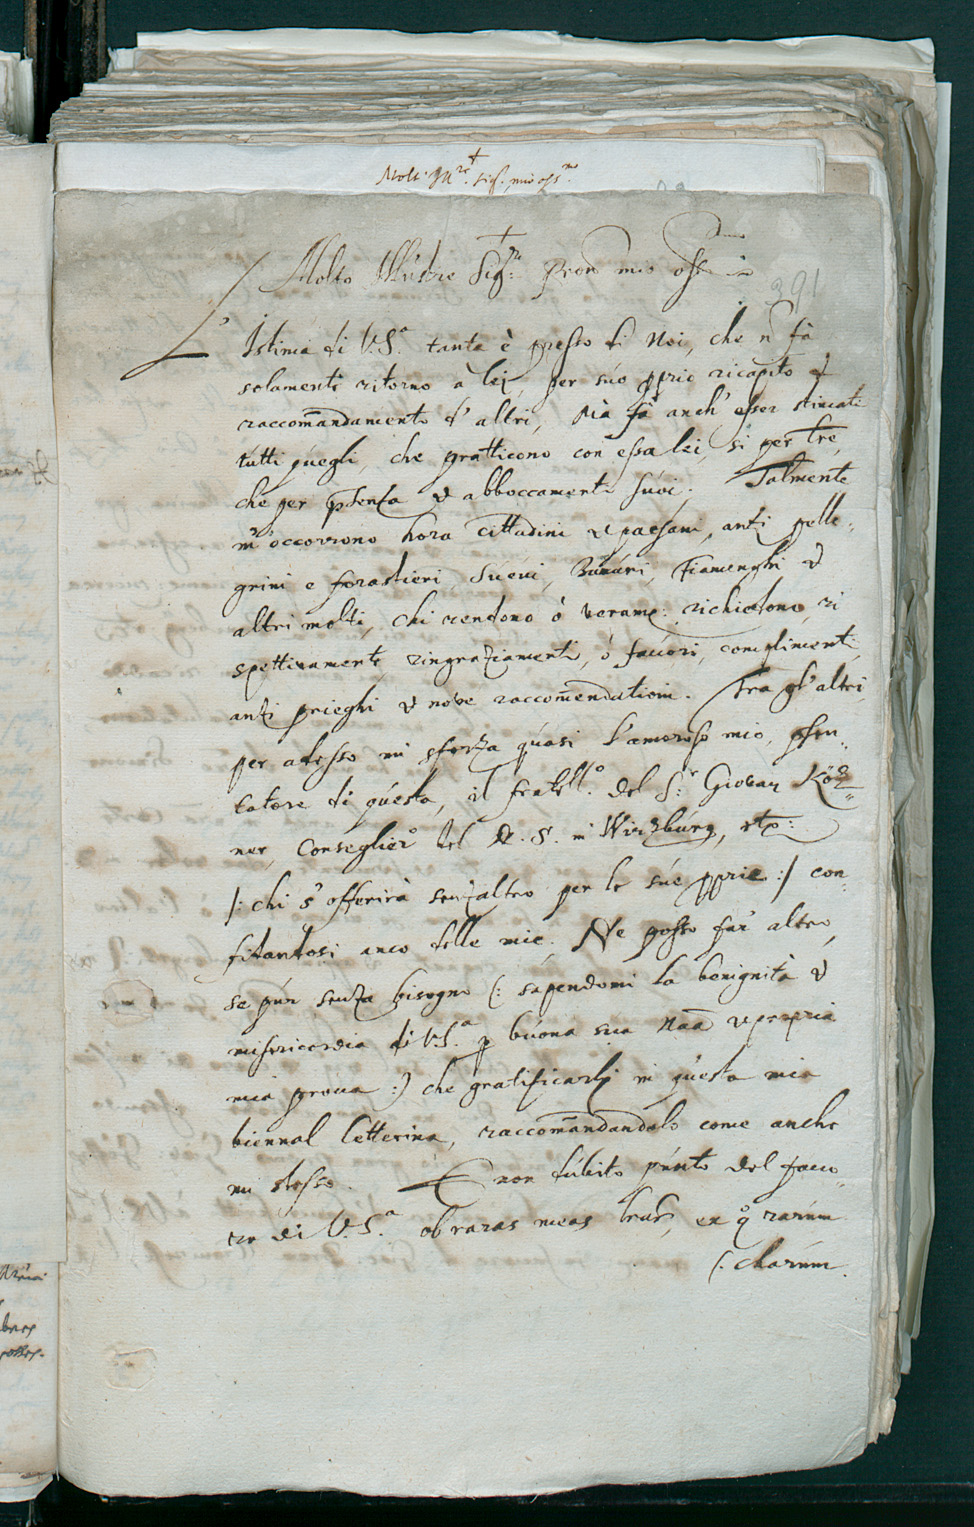 Molt. Ill.re Sig.r mio oss.mo
Molto Illustre Sig.re Pron mio oss.mo
391
L' Istima di V.S.a tanta è presso di Noi, che ñ fà
solamente ritorno a lei, per súo pprio ricapito &
raccom̃andamento d' altri, Mà fà anch' esser stimati
tútti quegli, che pratticono con essa lei, sì per tre,
che per pñsenza & abboccamenti súoi. Talmente
m' occorrono hora cittadini & paesani, anti pelle=
grini e forastieri, Súeui, Báuári, Fiamenghi &
altri molti, chi rendono ò verame: richiedono, ri
spettiuamente, ringraziamenti, ò fauóri, complimenti,
anzi prieghi & nove raccom̃endationi. Fra gl' altri,
per adesso mi sforza quasi l'amoroso mio, pñsen=
tatore di questa, il fratell.o del S.r Giovan Köl=
ner, Conseglier.o del D. S. in Wirzbúrg, etc:
/: chi s' offerirà senz'altro per le súe pprie :/ con=
fidandosi anco delle mie. Ne posso far altro,
se pur senza bisogno (: sapendomi la benignità &
misericordia di V.S.a p buóna sua Naã & propria
mia proua :) che gratificarli in questa mia
biennal letterina, raccom̃andandolo come anche
mi stesso. E non dúbito púnto del fauo=
re di V.S.a ob raras meas tras, ex q.o rarúm
(: charúm.